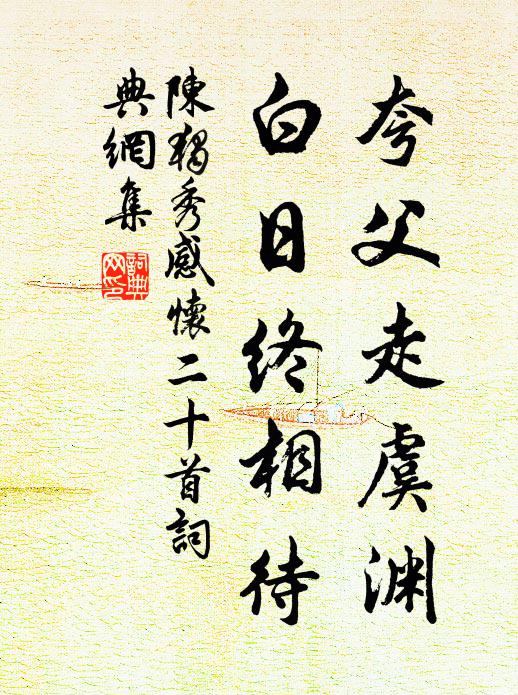 夸父走虞渊
白日终相待
陳獨秀感懷二十首詞
典網集
詞典
网印